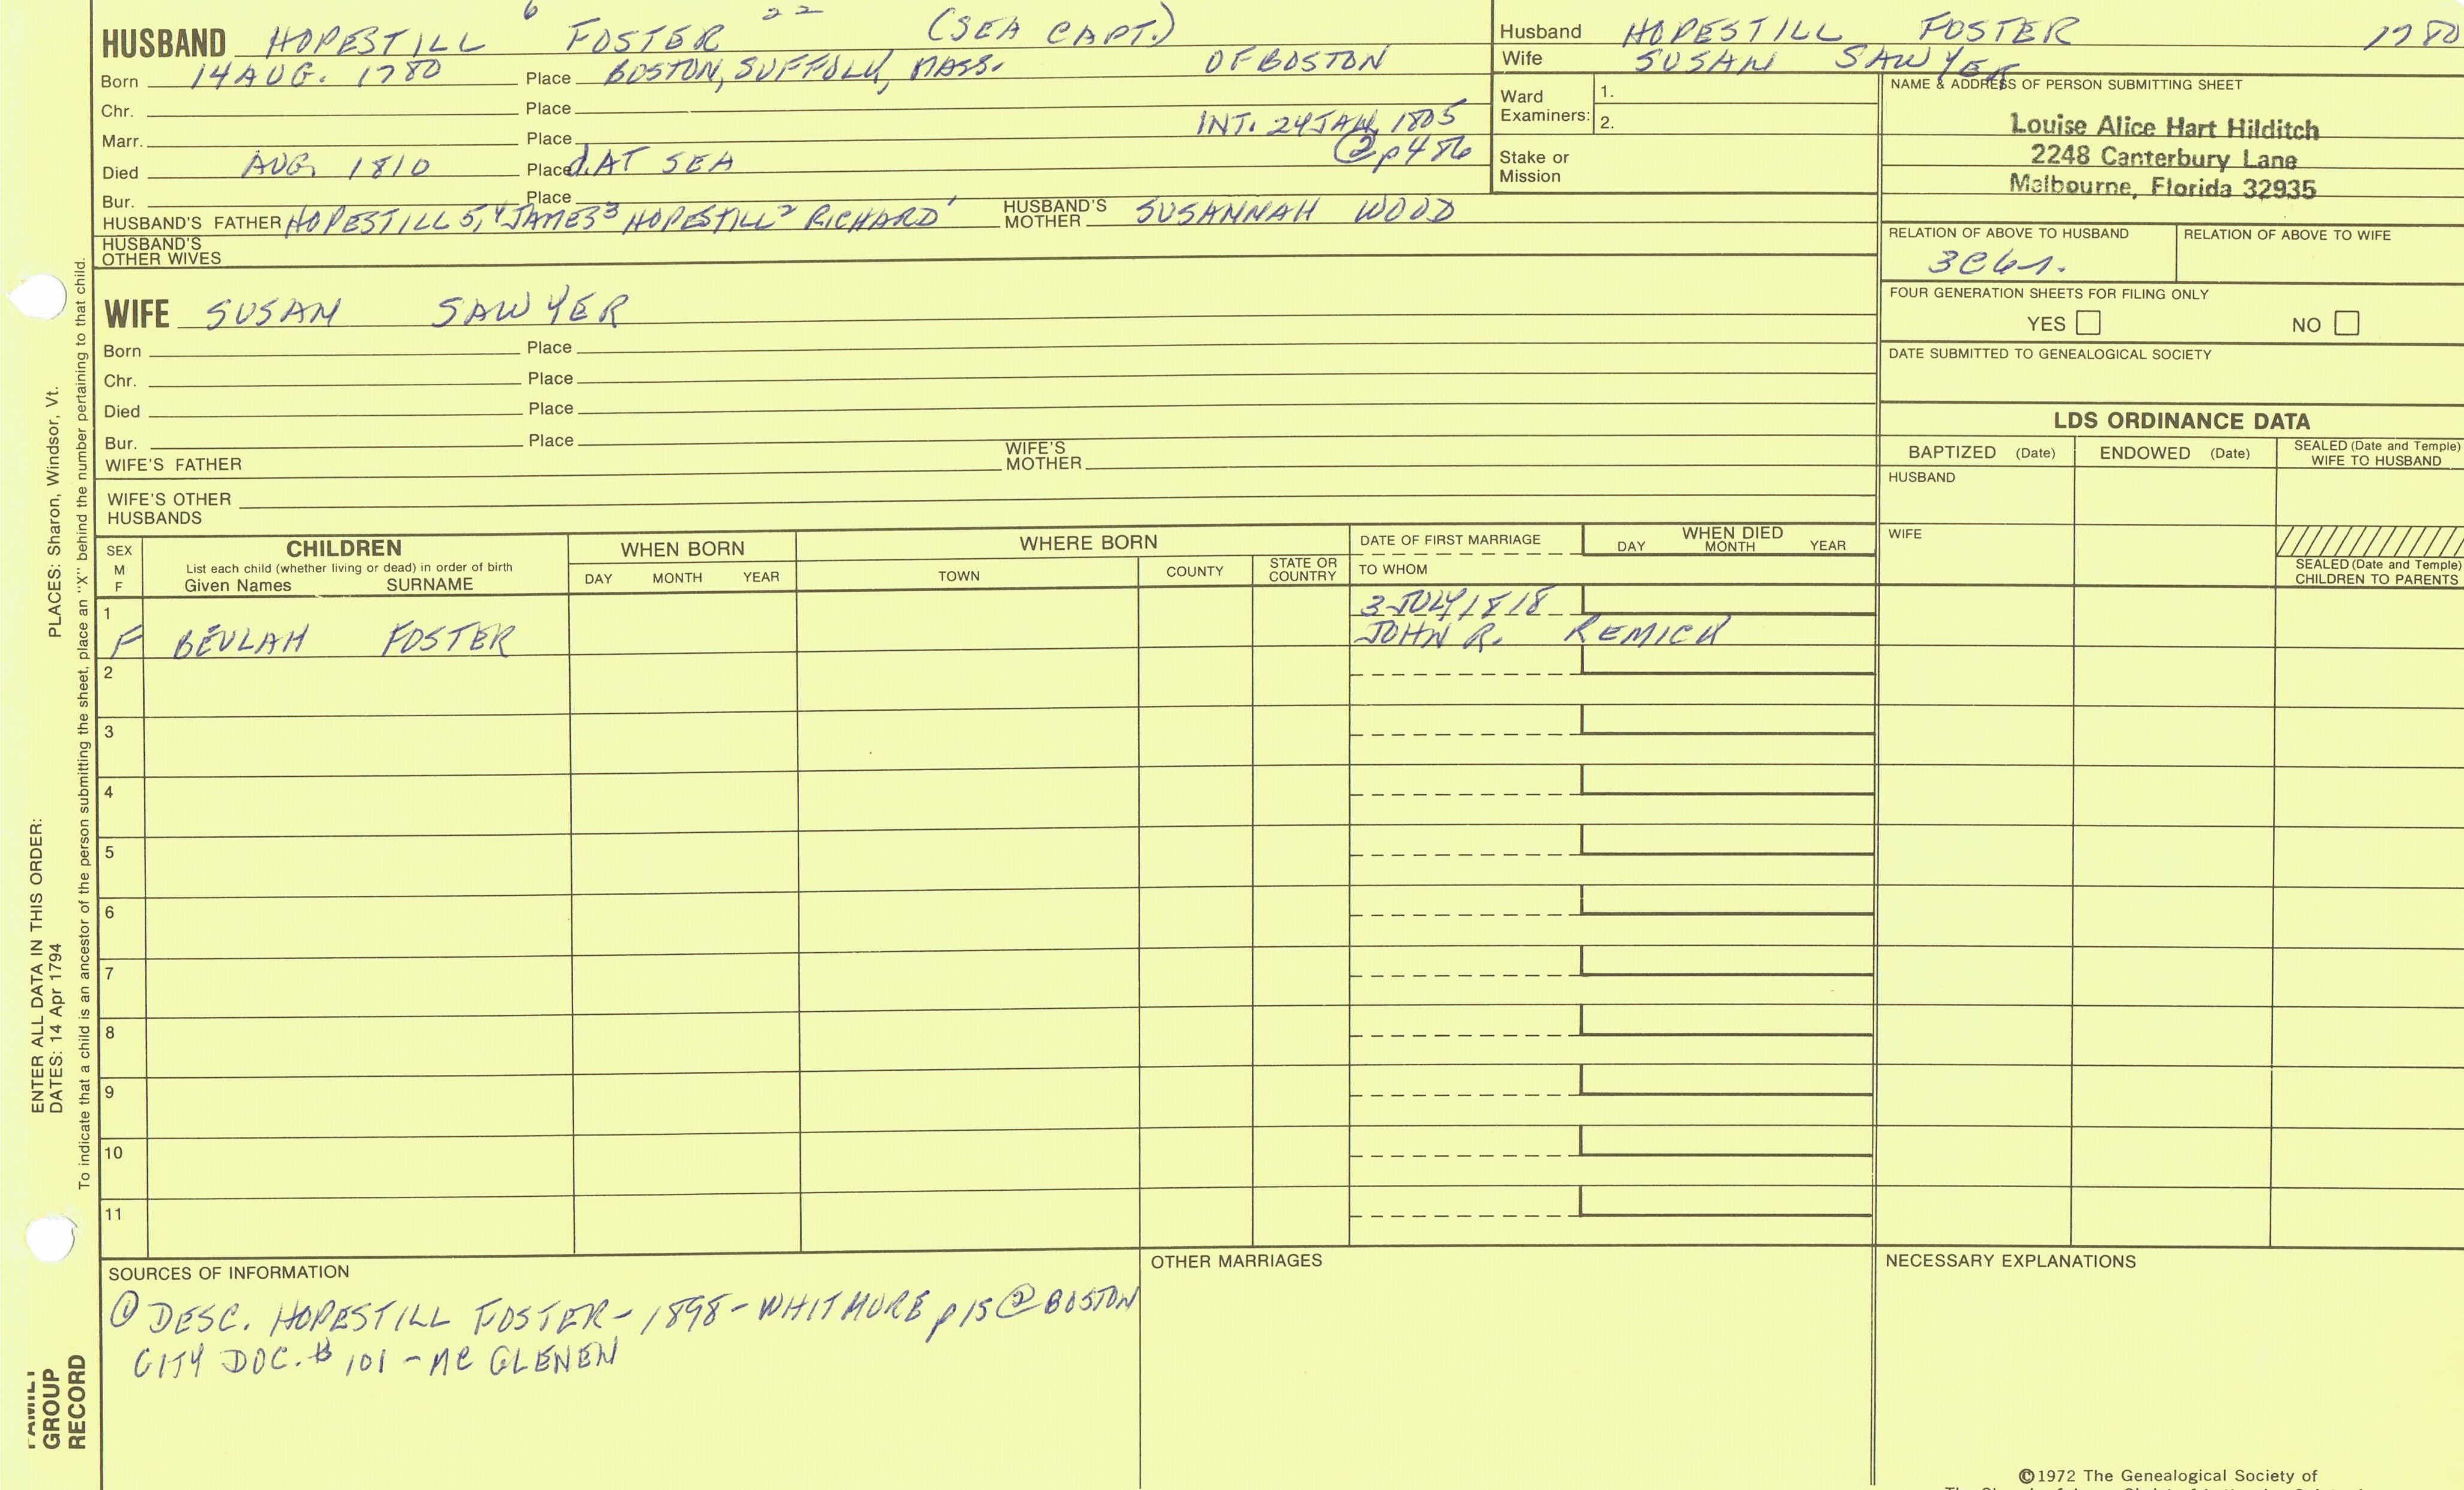 6 22
HUSBAND HOPESTILL FOSTER (SEA CAPT.)
Born 14 AUG. 1780 Place BOSTON, SUFFOLK, MASS. OF BOSTON
Chr. Place
Marr. Place INT. 24 JAN, 1805
② p486
Died AUG. 1810 Place d. AT SEA
Bur. Place
HUSBAND'S FATHER HOPESTILL 5, 4 JAMES 3 HOPESTILL 2 RICHARD 1 HUSBAND'S MOTHER SUSANNAH WOOD
HUSBAND'S
OTHER WIVES
Husband HOPESTILL FOSTER 1780
Wife SUSAN SAWYER
Ward
Examiners:
1.
2.
Stake or
Mission
NAME & ADDRESS OF PERSON SUBMITTING SHEET
Louise Alice Hart Hilditch
2248 Canterbury Lane
Melbourne, Florida 32935
RELATION OF ABOVE TO HUSBAND RELATION OF ABOVE TO WIFE
3C6r.
FOUR GENERATION SHEETS FOR FILING ONLY
YES NO
DATE SUBMITTED TO GENEALOGICAL SOCIETY
WIFE SUSAN SAWYER
Born Place
Chr. Place
Died Place
Bur. Place
WIFE'S FATHER WIFE'S MOTHER
WIFE'S OTHER
HUSBANDS
LDS ORDINANCE DATA
BAPTIZED (Date) ENDOWED (Date) SEALED (Date and Temple)
WIFE TO HUSBAND
HUSBAND
WIFE
SEALED (Date and Temple)
CHILDREN TO PARENTS
SEX
M
F
CHILDREN
List each child (whether living or dead) in order of birth
Given Names SURNAME
WHEN BORN
DAY MONTH YEAR
WHERE BORN
TOWN COUNTY STATE OR COUNTRY
DATE OF FIRST MARRIAGE
TO WHOM
WHEN DIED
DAY MONTH YEAR
1 3 JULY 1818
F BEULAH FOSTER JOHN R. REMICK
2
3
4
5
6
7
8
9
10
11
SOURCES OF INFORMATION
① DESC. HOPESTILL FOSTER - 1898 - WHITMORE p15 ② BOSTON
CITY DOC. # 101 - MC GLENEN
OTHER MARRIAGES
NECESSARY EXPLANATIONS
©1972 The Genealogical Society of
PLACES: Sharon, Windsor, Vt.
ENTER ALL DATA IN THIS ORDER:
DATES: 14 Apr 1794
To indicate that a child is an ancestor of the person submitting the sheet, place an "X" behind the number pertaining to that child.
FAMILY
GROUP
RECORD